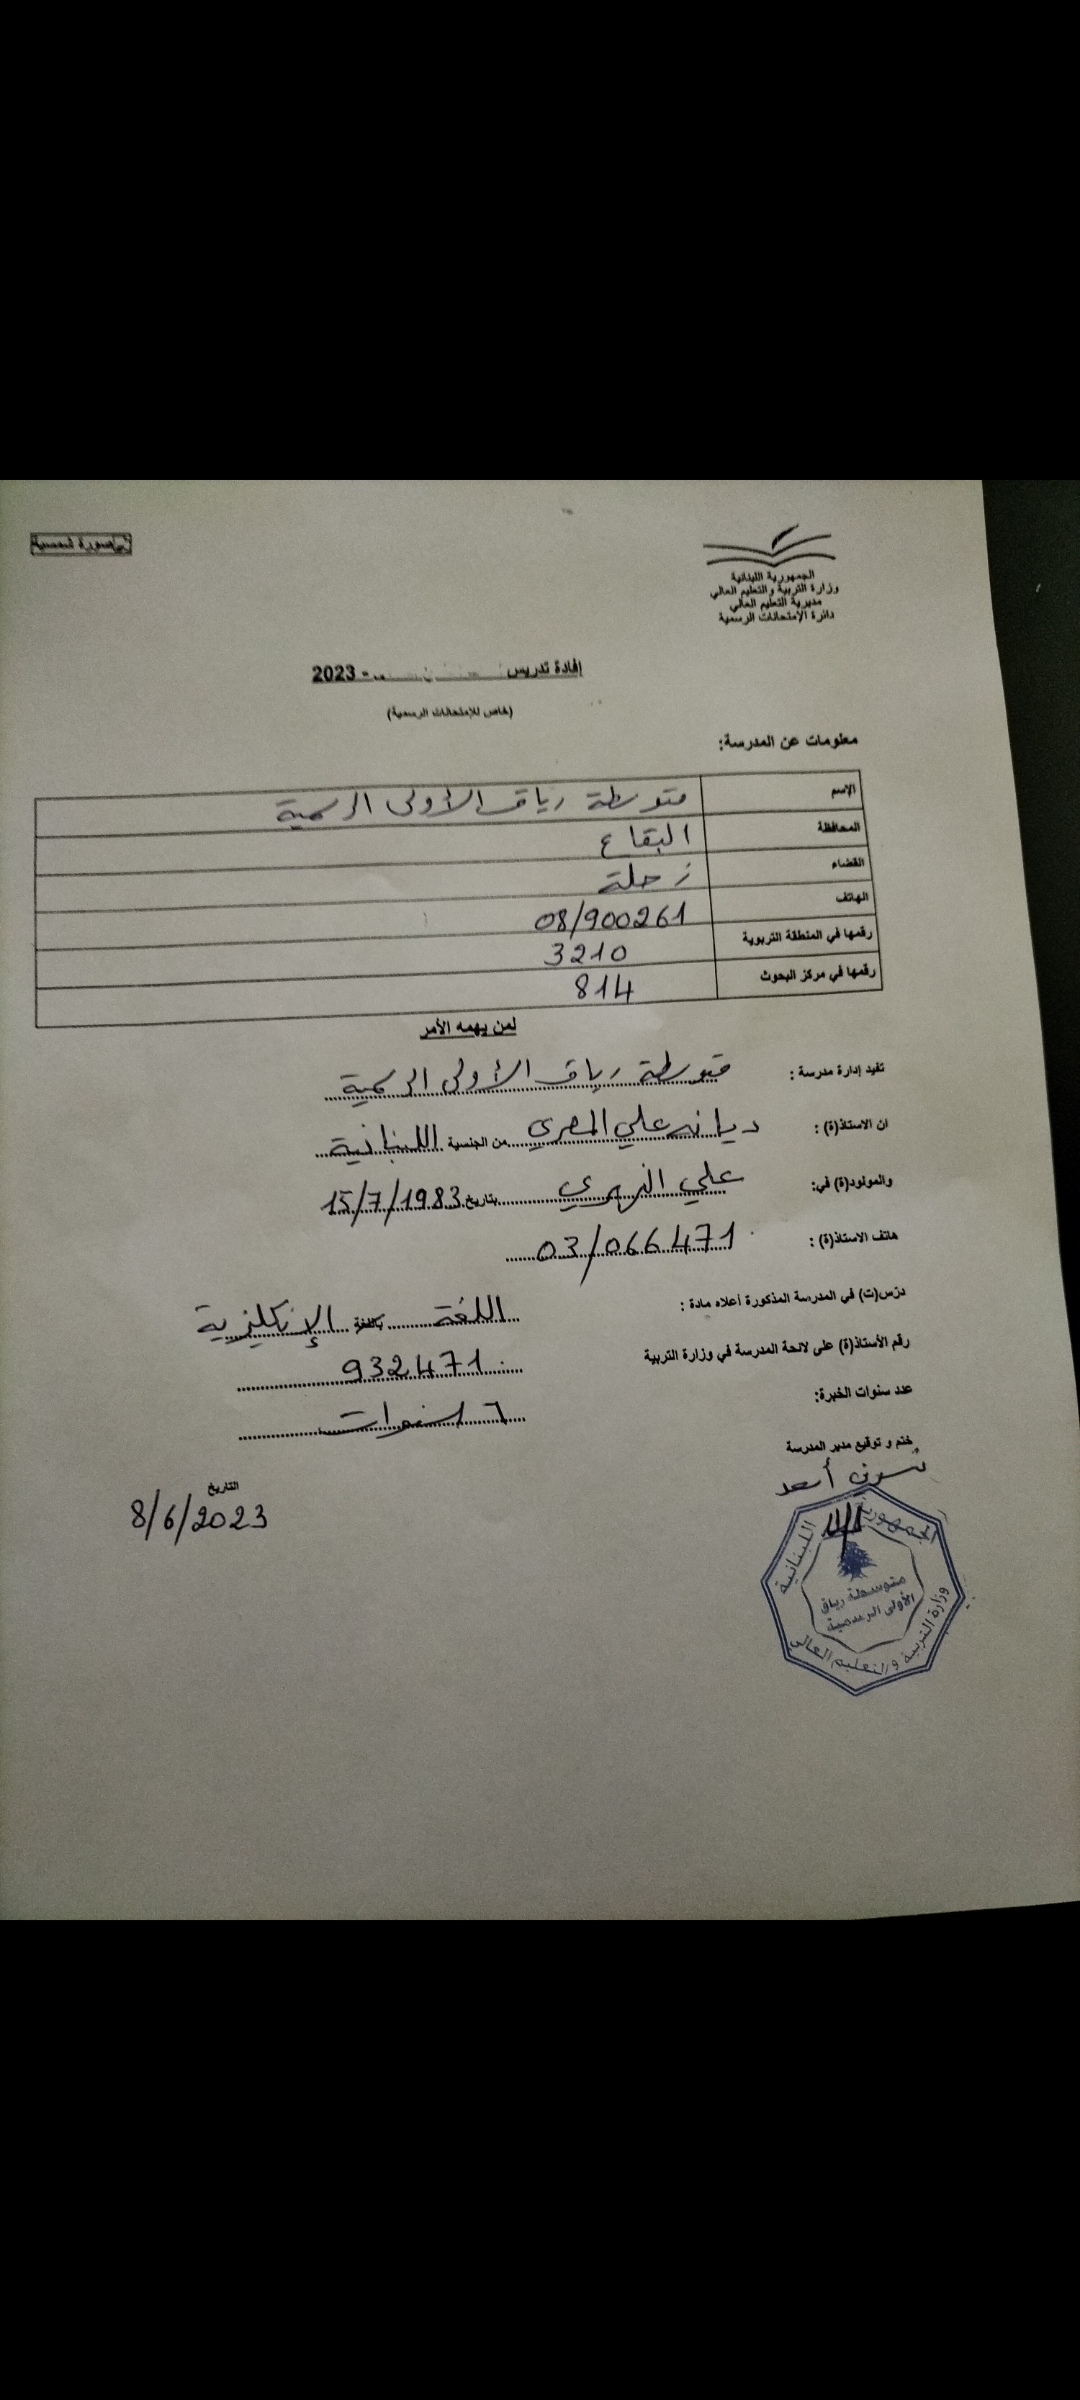 صورة شمسية
الجمهورية اللبنانية
وزارة التربية والتعليم العالي
مديرية التعليم العالي
دائرة الإمتحانات الرسمية
إفادة تدريس - 2023
(خاص للإمتحانات الرسمية)
معلومات عن المدرسة:
الإسم متوسطة رياق الأولى الرسمية
المحافظة البقاع
القضاء زحلة
الهاتف 08/900261
رقمها في المنطقة التربوية 3210
رقمها في مركز البحوث 814
لمن يهمه الأمر
تفيد إدارة مدرسة : متوسطة رياق الأولى الرسمية
ان الاستاذ(ة) : ديانه علي المصري من الجنسية اللبنانية
والمولود(ة) في: علي النهري بتاريخ 15/7/1983
هاتف الاستاذ(ة) : 03/066471
درّس(ت) في المدرسة المذكورة أعلاه مادة : اللغة باللغة الإنكليزية
رقم الأستاذ(ة) على لائحة المدرسة في وزارة التربية 932471
عدد سنوات الخبرة: ٦ سنوات
ختم و توقيع مدير المدرسة
نسرين أسعد
التاريخ
8/6/2023
الجمهورية اللبنانية
متوسطة رياق
الأولى الرسمية
وزارة التربية والتعليم العالي